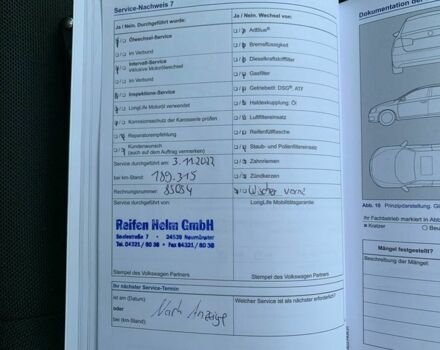 Service-Nachweis 7
Ja / Nein. Durchgeführt wurde:
Ölwechsel-Service
im Verbund
Intervall-Service
inklusive Motorölwechsel
im Verbund
Inspektions-Service
LongLife Motoröl verwendet
Korrosionsschutz der Karosserie prüfen
Reparaturempfehlung
Kundenwunsch
(auch auf dem Auftrag vermerken)
Service durchgeführt am: 3.11.2022
bei km-Stand: 189.315
Rechnungsnummer: 85084
Service durchgeführt von:
Reifen Helm GmbH
24539 Neumünster
Tel. 04321 / 80 38 • Fax 04321 / 80 38
Stempel des Volkswagen Partners
Ja / Nein. Wechsel von:
AdBlue®
Bremsflüssigkeit
Dieselkraftstofffilter
Gasfilter
Getriebeöl: DSG®, ATF
Haldexkupplung: Öl
Luftfiltereinsatz
Reifenfüllflasche
Staub- und Pollenfiltereinsatz
Zahnriemen
Zündkerzen
Wischer vorne
LongLife Mobilitätsgarantie:
Stempel des Volkswagen Partners
Ihr nächster Service-Termin
ist am (Datum):
oder
bei (km-Stand):
Nach Anzeige
Welcher Service ist als nächster erforderlich?
Dokumentation der
Abb. 18 Prinzipdarstellung:
Ihr Fachbetrieb markiert in Abb.
Kratzer
Beu
Mängel festgestellt?
Beschreibung der Mängel: